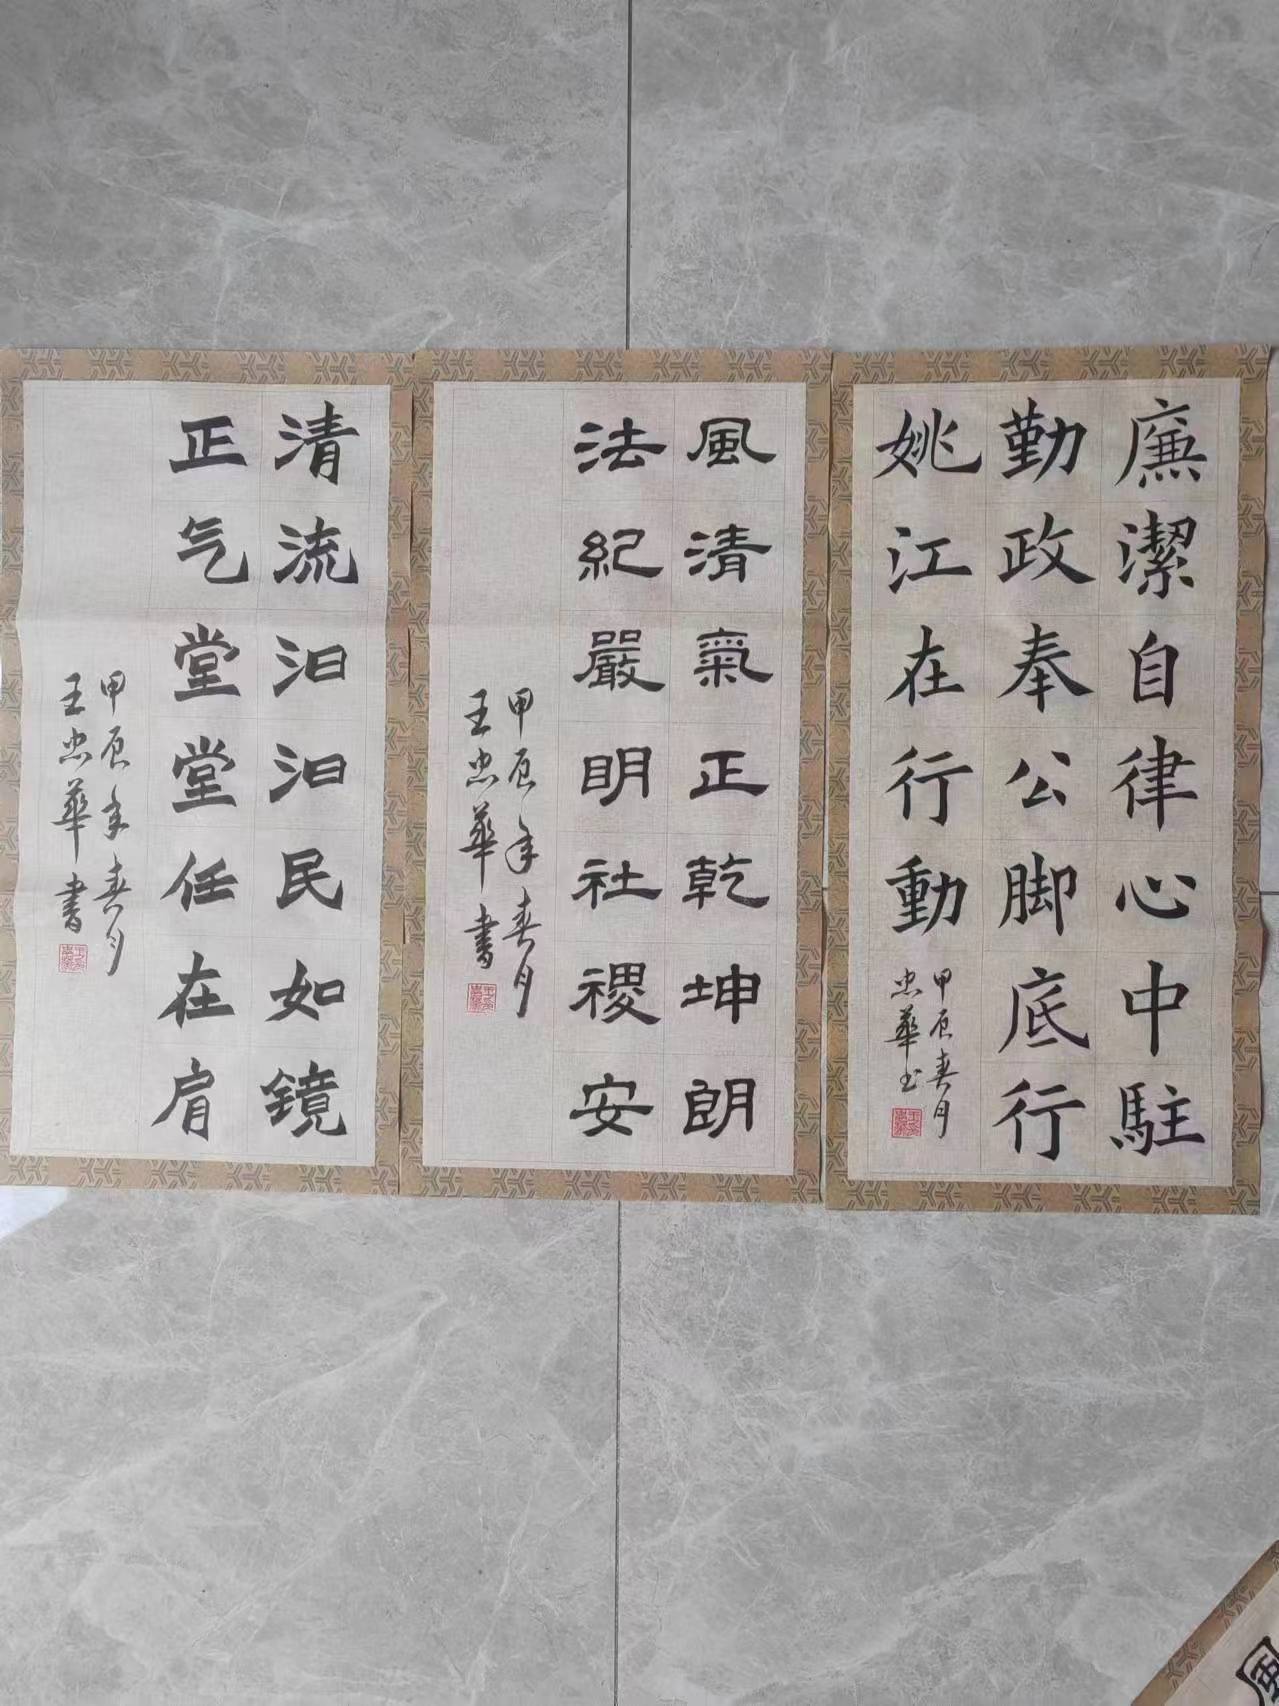 廉潔自律心中駐
勤政奉公脚底行
姚江在行動
甲辰春月
忠華书
風清氣正乾坤朗
法紀嚴明社稷安
甲辰年春月
王忠華書
清流汩汩民如镜
正气堂堂任在肩
甲辰年春月
王忠華書
風